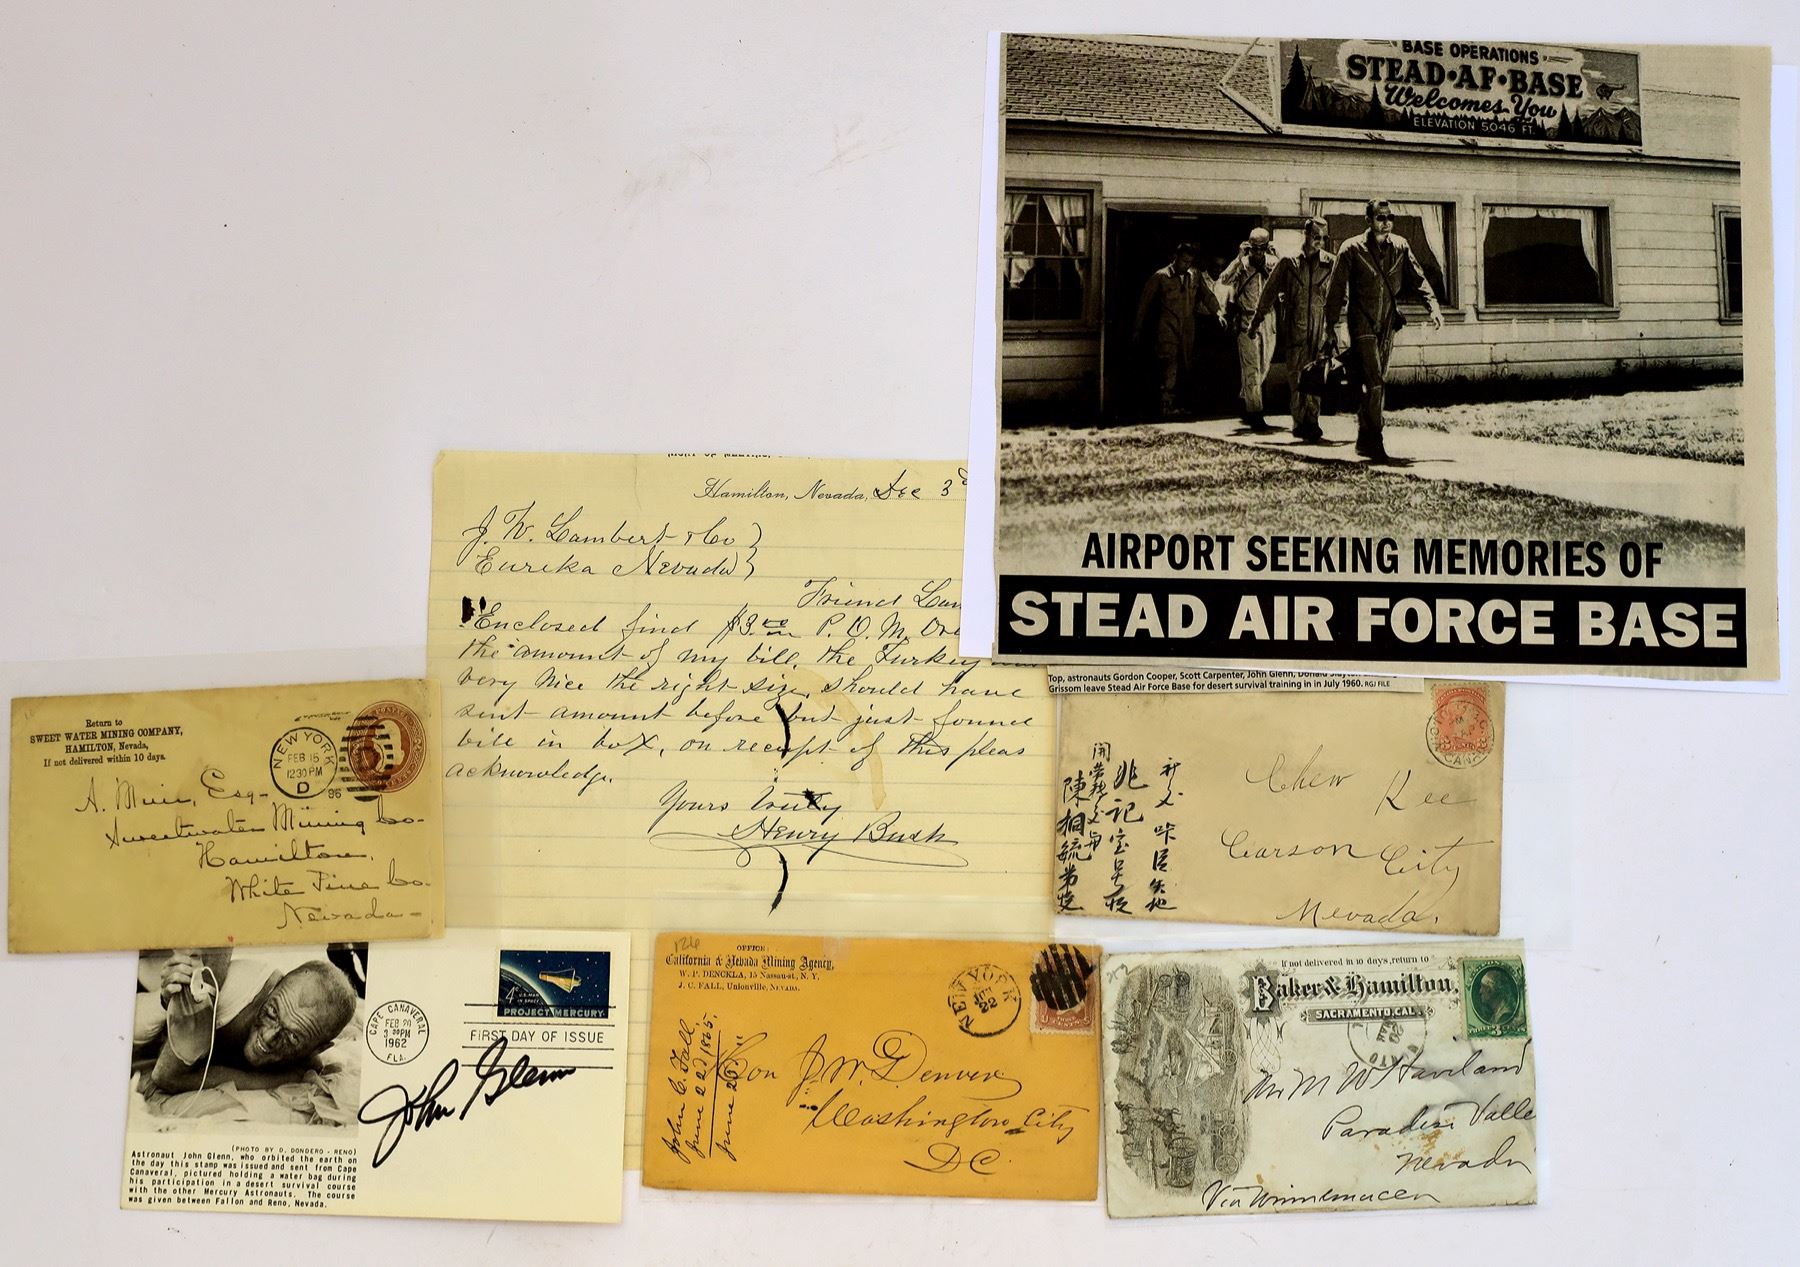 BASE OPERATIONS
STEAD•AF•BASE
Welcomes You
ELEVATION 5046 FT.
AIRPORT SEEKING MEMORIES OF
STEAD AIR FORCE BASE
Top, astronauts Gordon Cooper, Scott Carpenter, John Glenn, Donald Slayton
Grissom leave Stead Air Force Base for desert survival training in in July 1960. RGJ FILE
Hamilton, Nevada, Dec 3d
J. W. Lambert & Co
Eureka Nevada
Friend Lam
Enclosed find $3.00 P. O. M. Ord
the amount of my bill, the Turkey was
very nice the right size, should have
sent amount before but just found
bill in box, on receipt of this pleas
acknowledge.
Yours Truly
Henry Bush
Return to
SWEET WATER MINING COMPANY,
HAMILTON, Nevada,
If not delivered within 10 days.
NEW YORK
FEB 15
12 30 PM
D
96
A. Muir, Esq-
Sweetwater Mining Co-
Hamilton,
White Pine Co.
Nevada-
Chew Kee
Carson City
Nevada.
陳相
兆記宝号
CANADA
4¢
U.S. MAN
IN SPACE
PROJECT MERCURY
CAPE CANAVERAL
FEB 20
3 30 PM
1962
FLA.
FIRST DAY OF ISSUE
John Glenn
(PHOTO BY D. DONDERO - RENO)
Astronaut John Glenn, who orbited the earth on
the day this stamp was issued and sent from Cape
Canaveral, pictured holding a water bag during
his participation in a desert survival course
with the other Mercury Astronauts. The course
was given between Fallon and Reno, Nevada.
126
OFFICE:
California & Nevada Mining Agency,
W. P. DENCKLA, 15 Nassau-st., N. Y.
J. C. FALL, Unionville, NEVADA.
NEW YORK
JUN
22
John C. Fall
June 22d 1865.
June 23d
Hon J. W. Denver
Washington City
D.C.
If not delivered in 10 days, return to
Baker & Hamilton,
SACRAMENTO, CAL.
THREE CENTS
Mr M W Haviland
Paradise Valle
Nevada
Via Winnemucca